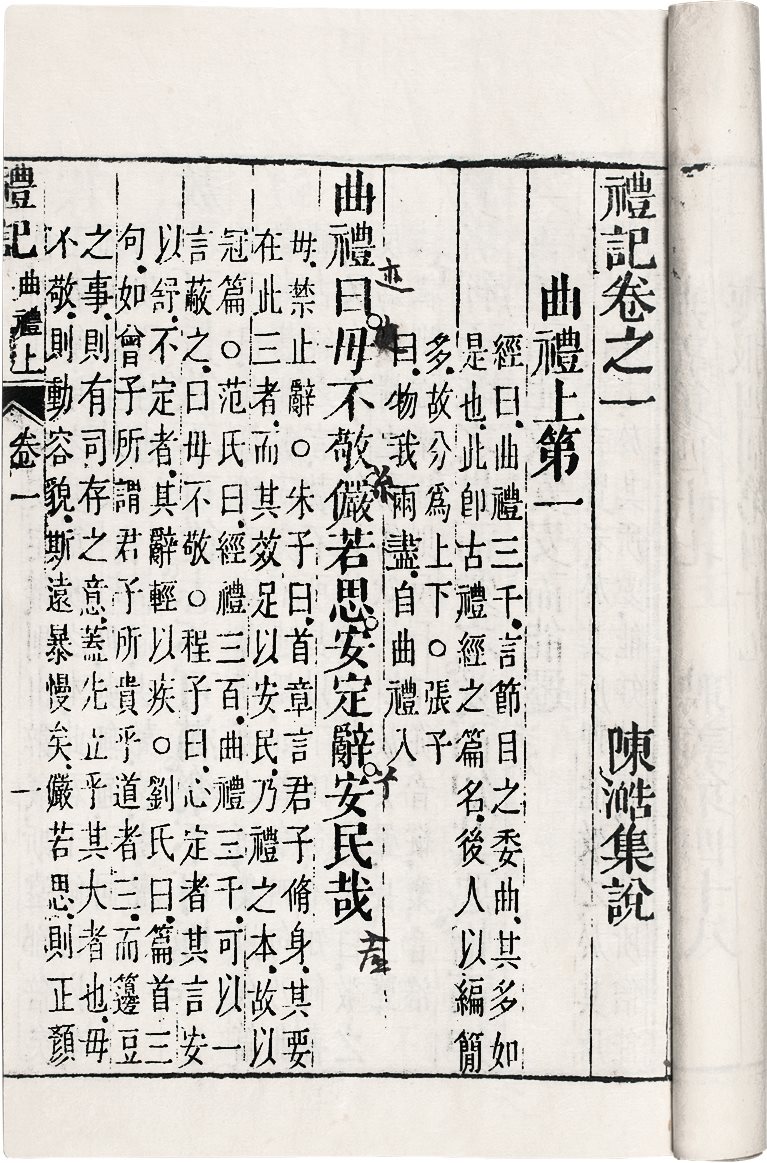 禮記卷之一
陳澔集說
曲禮上第一
經曰曲禮三千言節目之委曲其多如
是也此卽古禮經之篇名後人以編簡
多故分爲上下○張子
曰物我兩盡自曲禮入
曲禮曰毋不敬儼若思安定辭安民哉
毋禁止辭○朱子曰首章言君子脩身其要
在此三者而其效足以安民乃禮之本故以
冠篇○范氏曰經禮三百曲禮三千可以一
言蔽之曰毋不敬○程子曰心定者其言安
以舒不定者其辭輕以疾○劉氏曰篇首三
句如曾子所謂君子所貴乎道者三而籩豆
之事則有司存之意蓋先立乎其大者也毋
不敬則動容貌斯遠暴慢矣儼若思則正顏
禮記
曲禮上
卷一
一